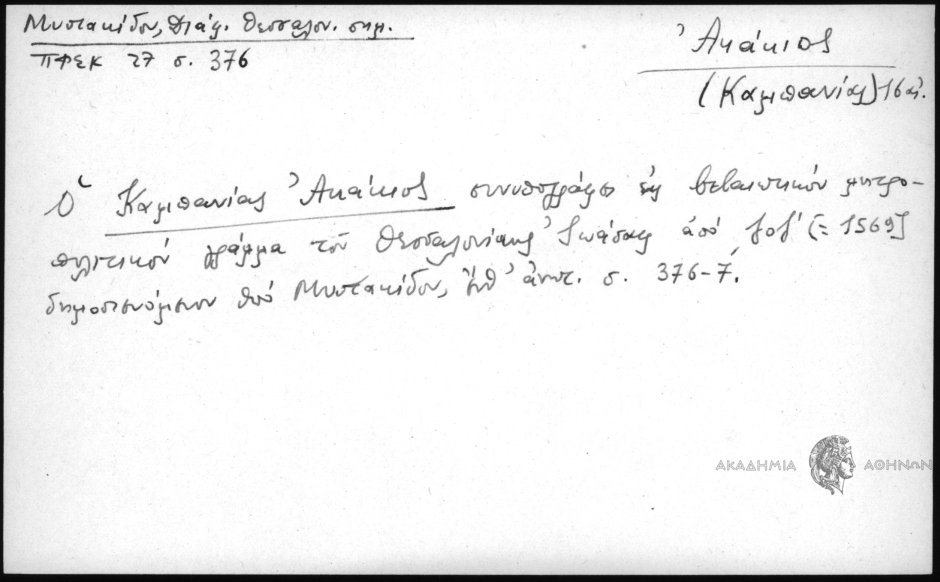 Μυστακίδου, Διάφ. Θεσσαλον. σημ.
ΠΦΣΚ 27 σ. 376
Ἀκάκιος
(Καμπανίας) 16 αἰ.
Ὁ Καμπανίας Ἀκάκιος συνυπογράφει εἰς βεβαιωτικὸν μητρο-
πολιτικὸν γράμμα τοῦ Θεσσαλονίκης Ἰωάσαφ ἀπὸ (= 1569]
δημοσιευόμενον ὑπὸ Μυστακίδου, ἔνθ' ἀνωτ. σ. 376-7.
ΑΚΑΔΗΜΙΑ ΑΘΗΝΩΝ